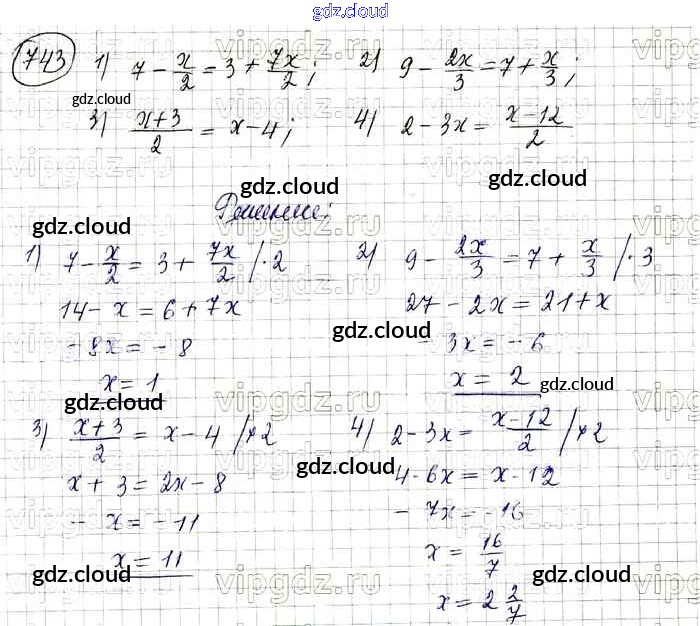 gdz.cloud
743 1) 7 - x/2 = 3 + 7x/2; 2) 9 - 2x/3 = 7 + x/3;
gdz.cloud
3) x+3/2 = x - 4; 4) 2 - 3x = x-12/2
gdz.cloud gdz.cloud
Решение:
gdz.cloud gdz.cloud
1) 7 - x/2 = 3 + 7x/2 /·2 2) 9 - 2x/3 = 7 + x/3 /·3
14 - x = 6 + 7x 27 - 2x = 21 + x
gdz.cloud
-8x = -8 - 3x = -6
x = 1 x = 2
gdz.cloud
gdz.cloud gdz.cloud
3) x+3/2 = x - 4 /×2 4) 2 - 3x = x-12/2 /×2
gdz.cloud
x + 3 = 2x - 8 4 - 6x = x - 12
- x = -11 - 7x = -16
x = 11 x = 16/7
gdz.cloud gdz.cloud gdz.cloud
x = 2 2/7
vipgdz.ru